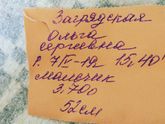 Загрядская
Ольга
Сергеевна
Р. 7/IV-19 15 40
мальчик
3.700
52 см